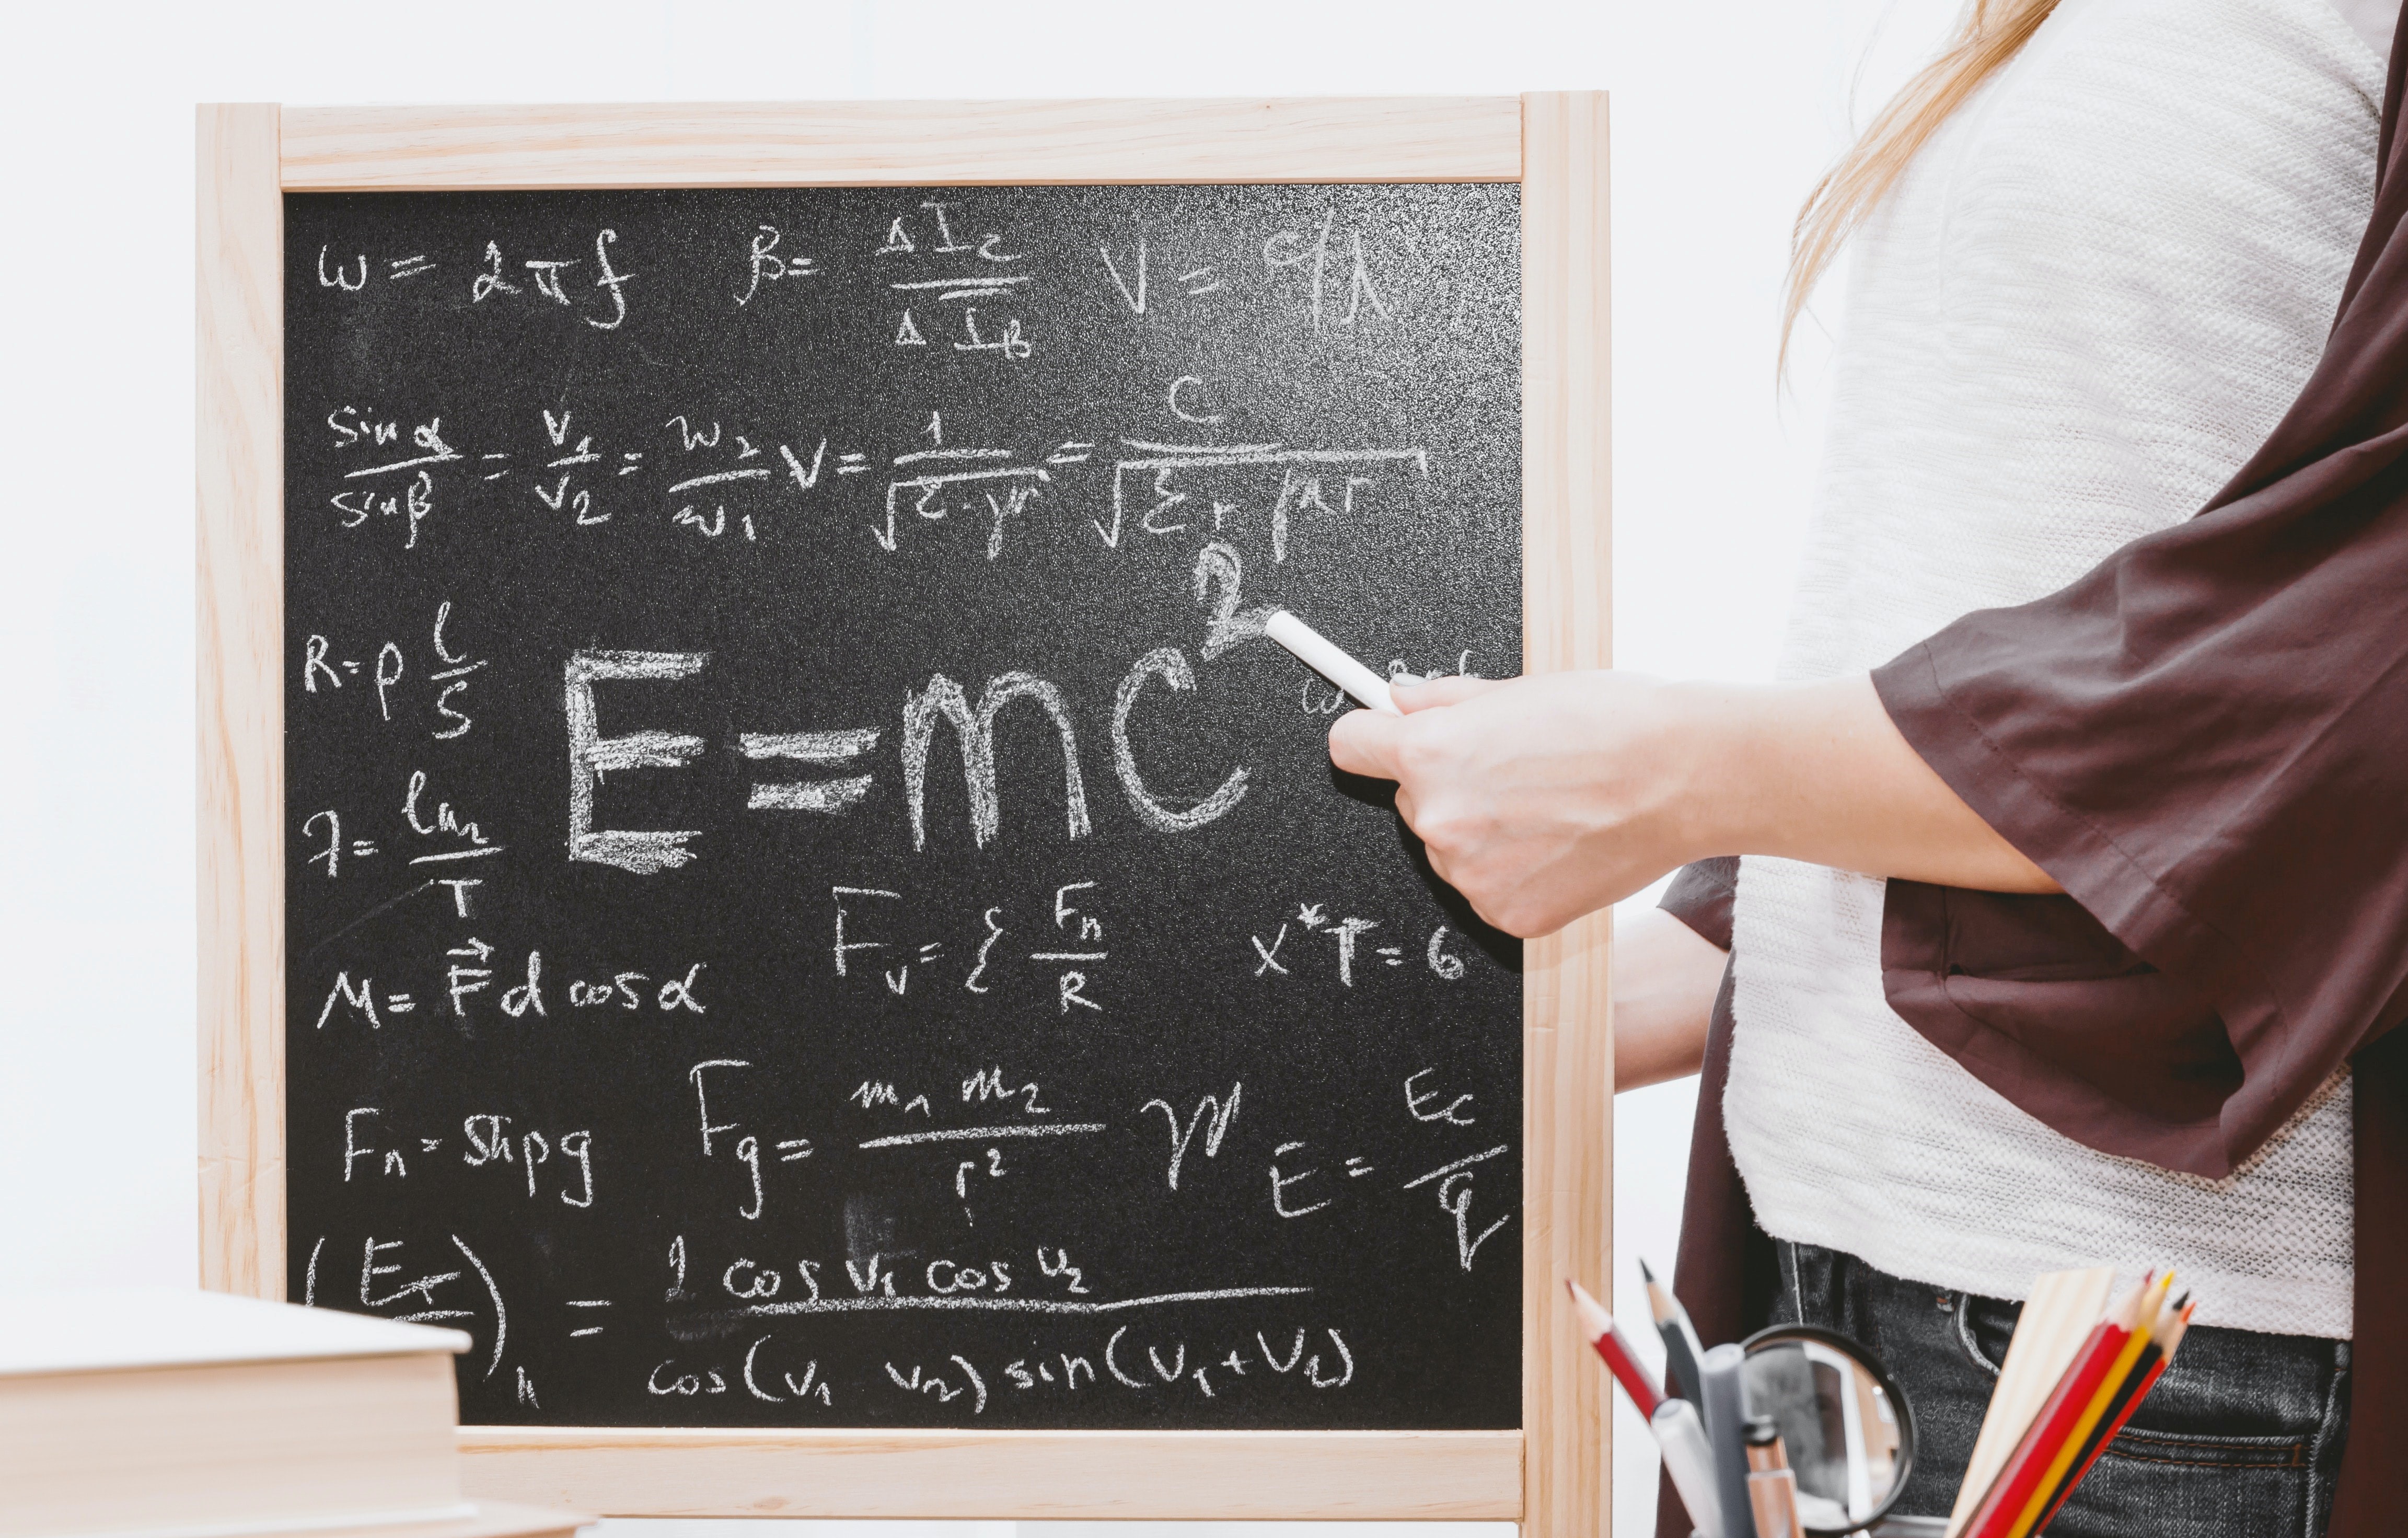 ω = 2πf   β = ΔIc / ΔIB   V = c/λ
sin α / sin β = v1 / v2 = w2 / w1   V = 1 / √(ε·μ) = c / √(εr μr)
R = ρ l/S
E = mc²
λ = ln2 / T
M = F⃗ d cos α   Fv = { Fn / R   x*T = 6
Fn = Shρg   Fg = m1 m2 / r²   E = Ec / q
2 cos v1 cos v2 / cos(v1 v2) sin(v1+v2)